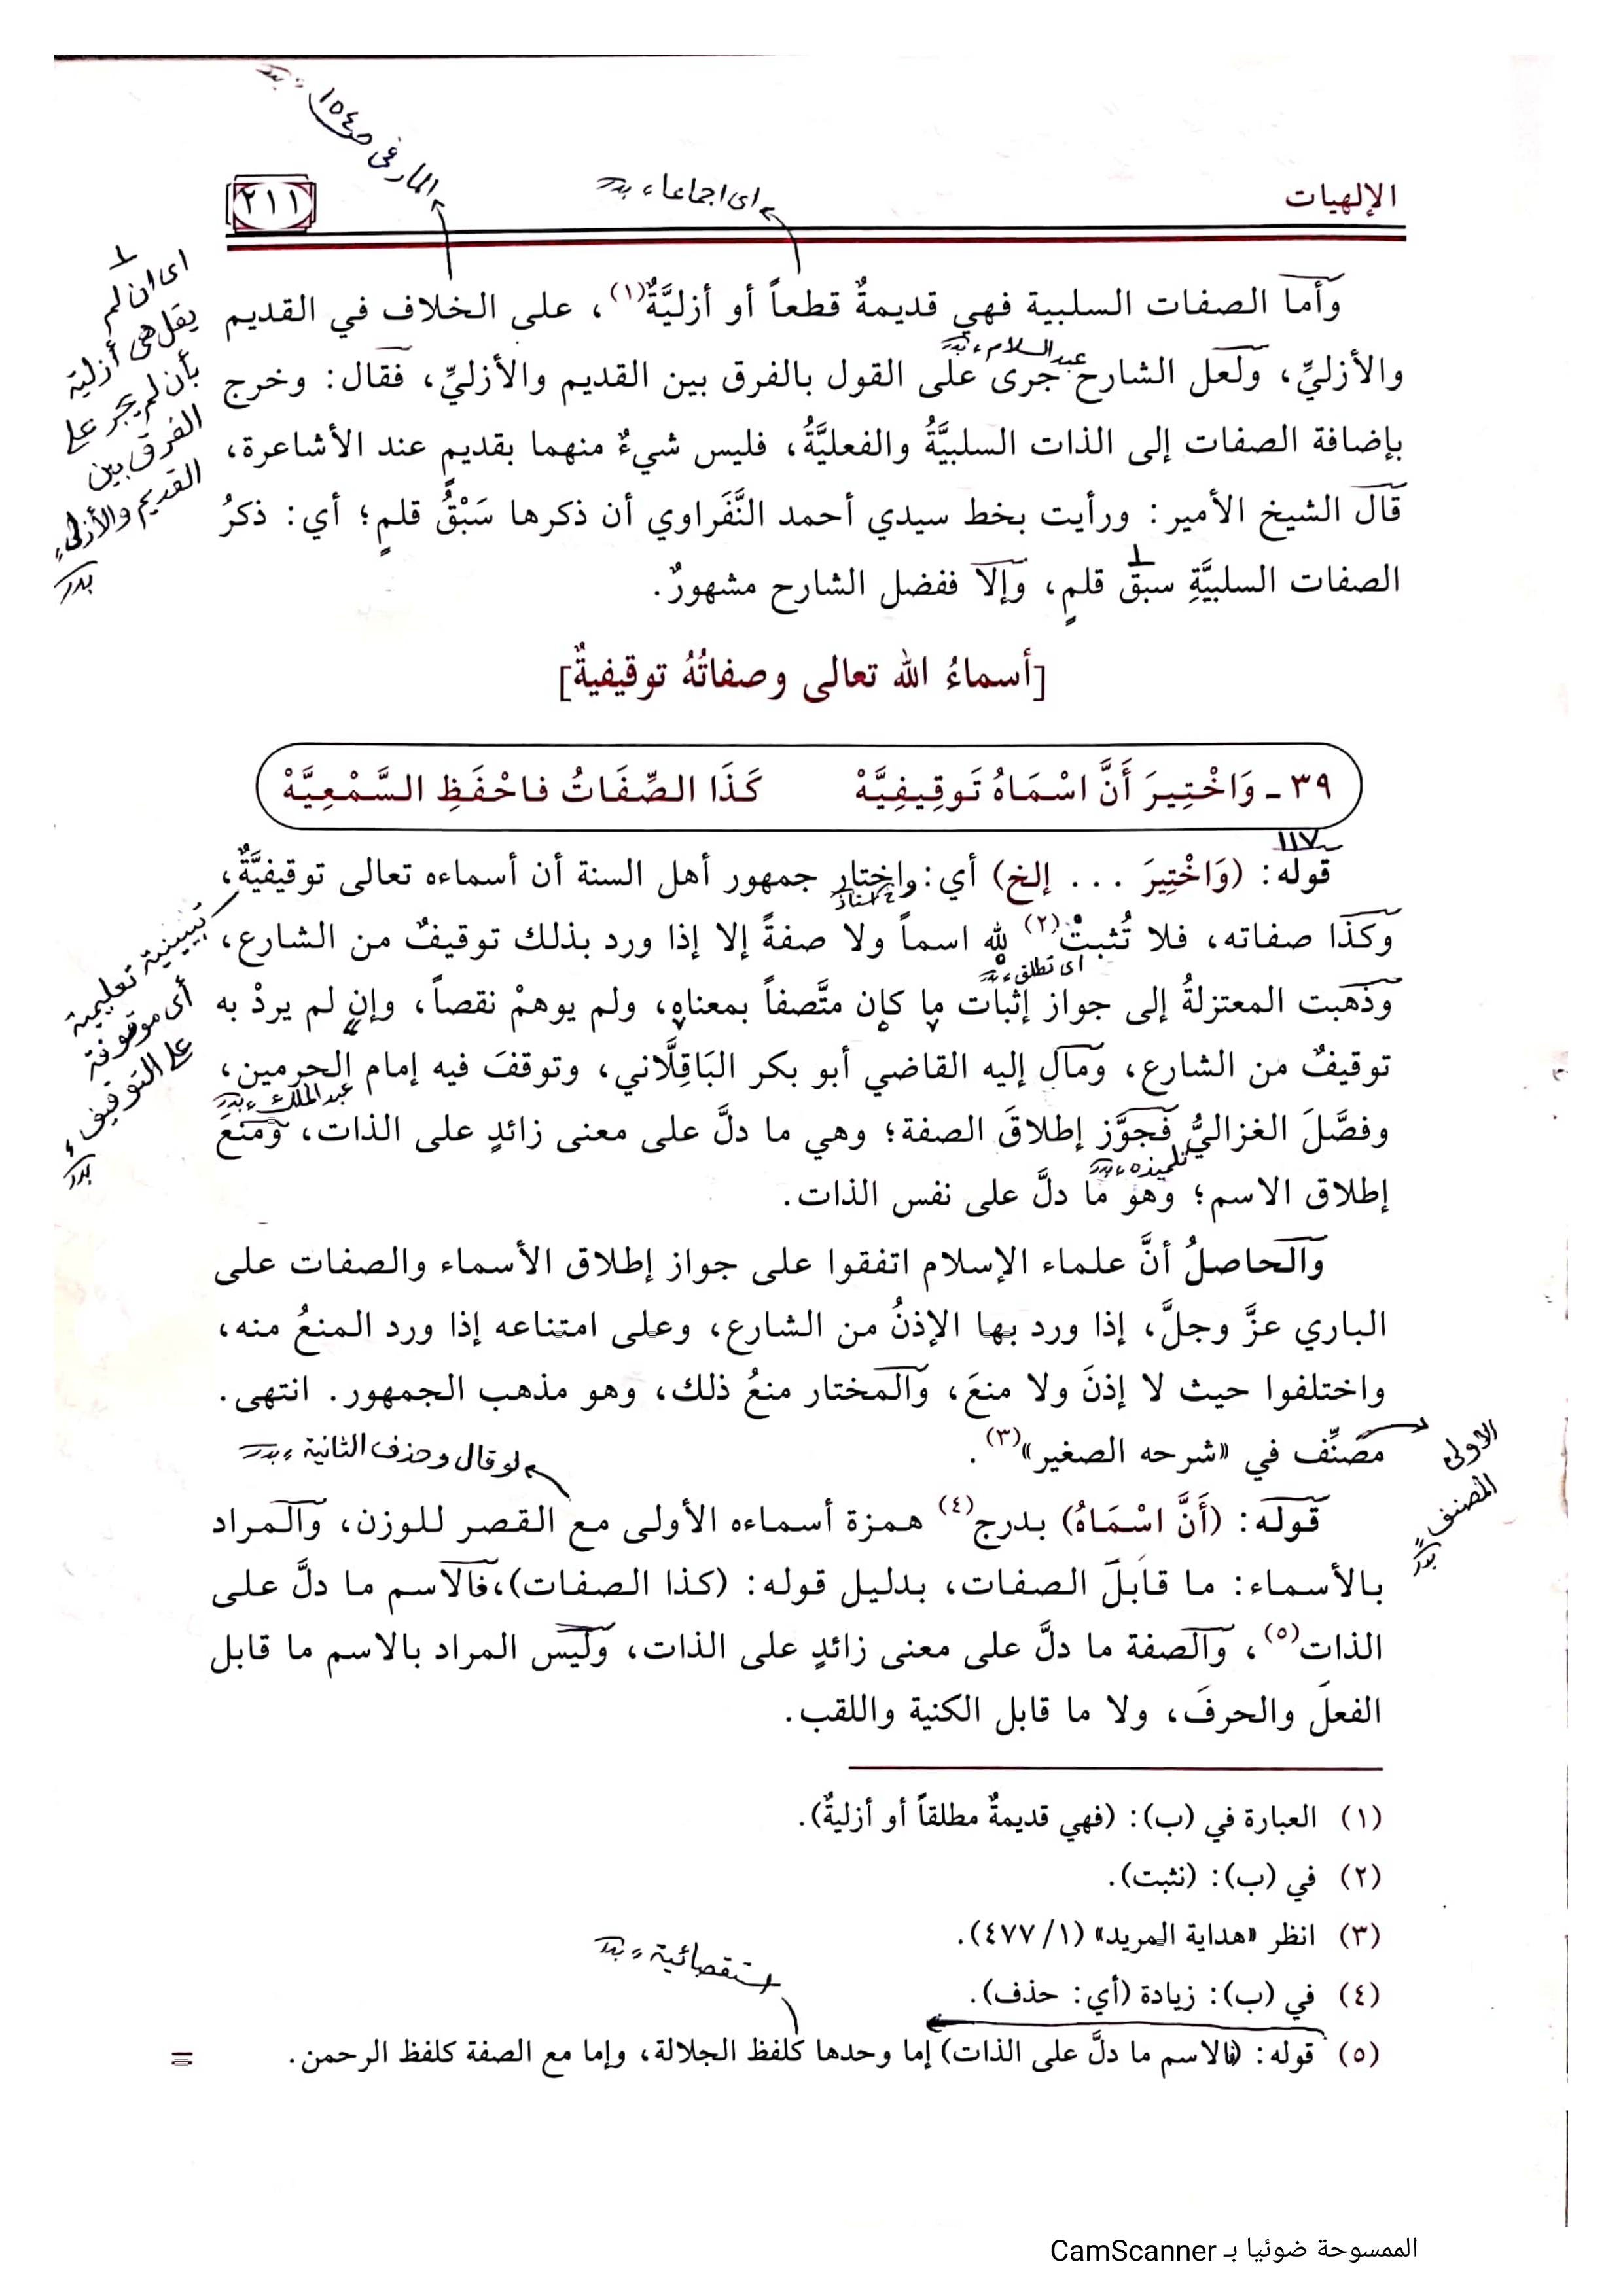 المار فى ص١٥٤ ؛ بدر
الإلهيات
اى اجماعا ، بدر
٢١١
وأما الصفات السلبية فهي قديمةٌ قطعاً أو أزليَّةٌ(١)، على الخلاف في القديم
عبد السلام ، بدر
والأزليِّ، ولعل الشارح جرى على القول بالفرق بين القديم والأزليِّ، فقال: وخرج
بإضافة الصفات إلى الذات السلبيَّةُ والفعليَّةُ، فليس شيءٌ منهما بقديمٍ عند الأشاعرة،
قال الشيخ الأمير: ورأيت بخط سيدي أحمد النَّفَراوي أن ذكرها سَبْقُ قلمٍ؛ أي: ذكرُ
الصفات السلبيَّةِ سبقُ قلمٍ، وإلا ففضل الشارح مشهورٌ.
اى ان لم
يقل هى أزلية
بأن لم يجر على
الفرق بين
القديم والأزلى ،
بدر
[أسماءُ الله تعالى وصفاتُهُ توقيفيةٌ]
٣٩ - وَاخْتِيرَ أَنَّ اسْمَاهُ تَوقِيفِيَّهْ كَذَا الصِّفَاتُ فاحْفَظِ السَّمْعِيَّهْ
١١٧
قوله: (وَاخْتِيرَ ... إلخ) أي: واختار جمهور أهل السنة أن أسماءه تعالى توقيفيَّةٌ،
وكذا صفاته، فلا تُثبتْ(٢) لله اسماً ولا صفةً إلا إذا ورد بذلك توقيفٌ من الشارع،
اى تطلق ، بدر
وذهبت المعتزلةُ إلى جواز إثبات ما كان متَّصفاً بمعناه، ولم يوهمْ نقصاً، وإن لم يردْ به
توقيفٌ من الشارع، ومال إليه القاضي أبو بكر البَاقِلَّاني، وتوقفَ فيه إمام الحرمين،
عبد الملك ، بدر
وفصَّلَ الغزاليُّ فجوَّز إطلاقَ الصفة؛ وهي ما دلَّ على معنى زائدٍ على الذات، ومنعَ
تلميذه ، بدر
إطلاق الاسم؛ وهو ما دلَّ على نفس الذات.
تبيينية تعليمية
أى موقوفة
على التوقيف ،
بدر
والحاصلُ أنَّ علماء الإسلام اتفقوا على جواز إطلاق الأسماء والصفات على
الباري عزَّ وجلَّ، إذا ورد بها الإذنُ من الشارع، وعلى امتناعه إذا ورد المنعُ منه،
واختلفوا حيث لا إذنَ ولا منعَ، والمختار منعُ ذلك، وهو مذهب الجمهور. انتهى.
مصنِّف في «شرحه الصغير»(٣).
الاولى
المصنف ،
بدر
لو قال وحذف الثانية ، بدر
قوله: (أَنَّ اسْمَاهُ) بدرج(٤) همزة أسماءه الأولى مع القصر للوزن، والمراد
بالأسماء: ما قابلَ الصفات، بدليل قوله: (كذا الصفات)، فالاسم ما دلَّ على
الذات(٥)، والصفة ما دلَّ على معنى زائدٍ على الذات، وليس المراد بالاسم ما قابل
الفعلَ والحرفَ، ولا ما قابل الكنية واللقب.
(١) العبارة في (ب): (فهي قديمةٌ مطلقاً أو أزليةٌ).
(٢) في (ب): (نثبت).
(٣) انظر «هداية المريد» (٤٧٧/١).
(٤) في (ب): زيادة (أي: حذف).
استقصائية ، بدر
(٥) قوله: (فالاسم ما دلَّ على الذات) إما وحدها كلفظ الجلالة، وإما مع الصفة كلفظ الرحمن. =
الممسوحة ضوئيا بـ CamScanner